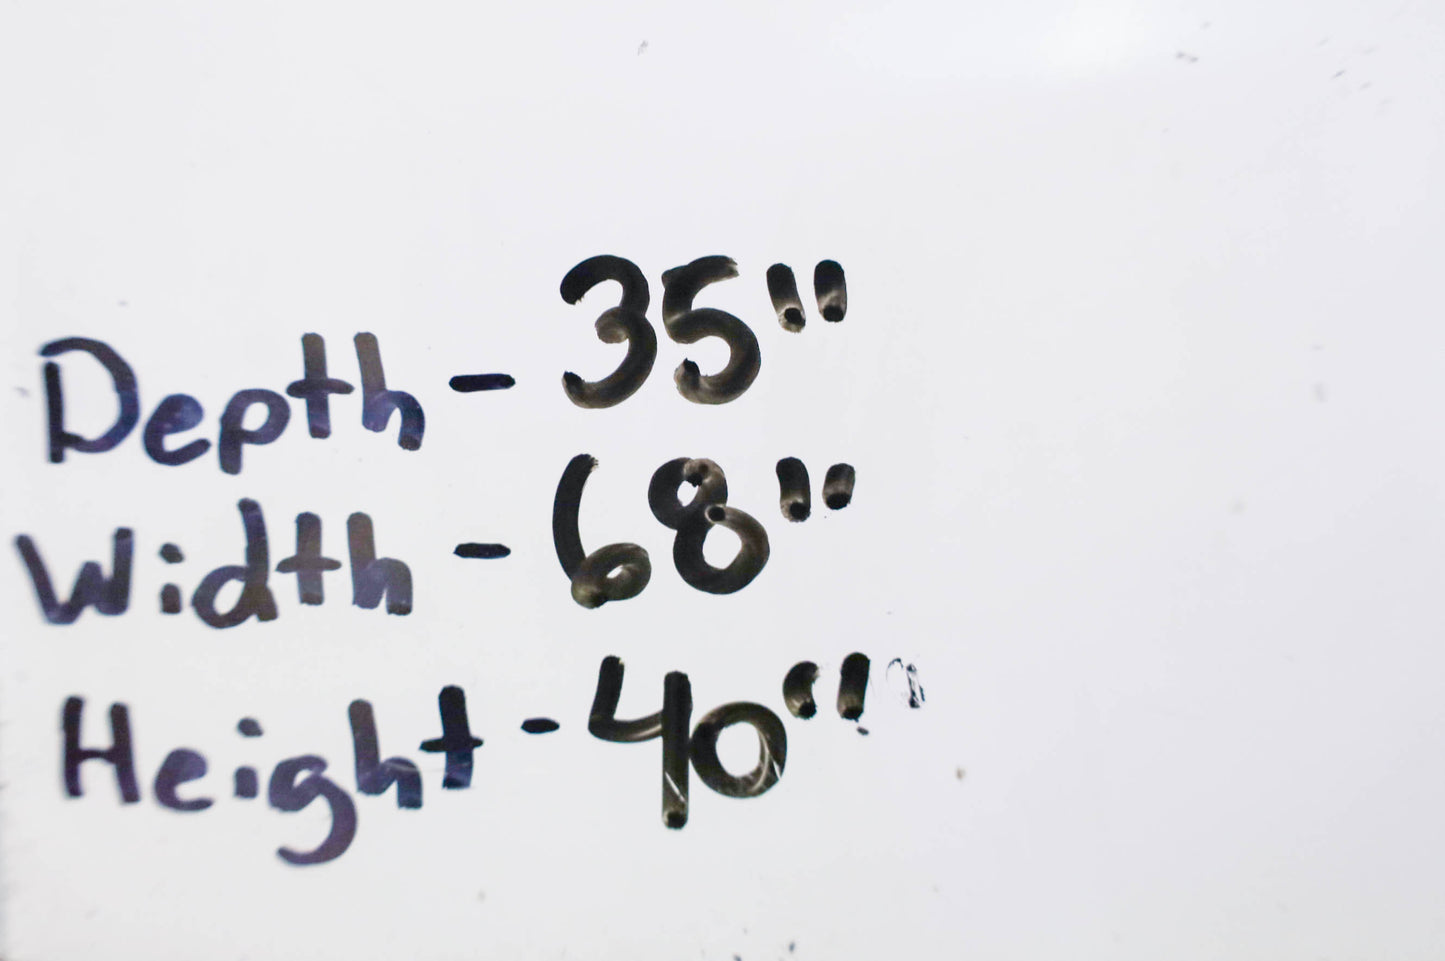 Depth - 35"
Width - 68"
Height - 40"